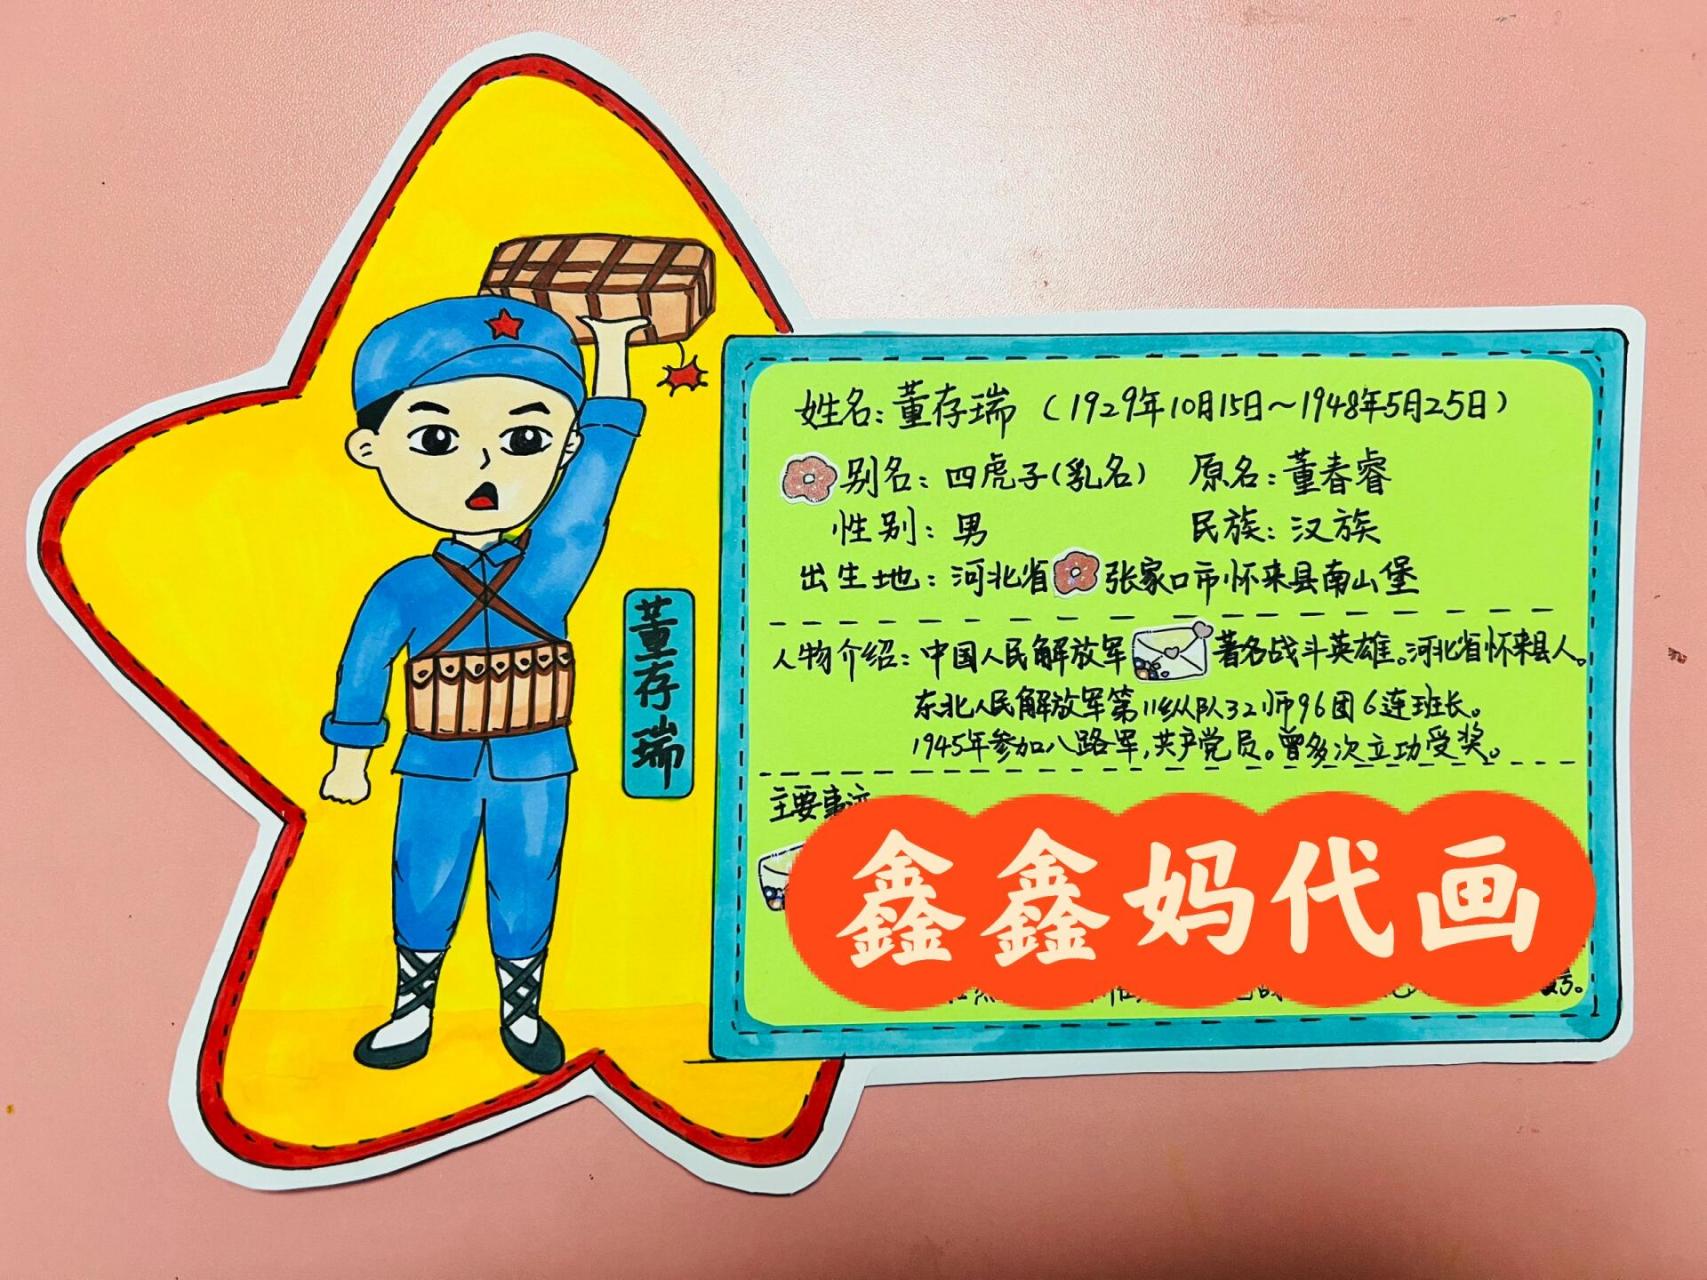 董存瑞
姓名：董存瑞（1929年10月15日～1948年5月25日）
别名：四虎子（乳名） 原名：董春睿
性别：男 民族：汉族
出生地：河北省张家口市怀来县南山堡
人物介绍：中国人民解放军著名战斗英雄。河北省怀来县人。
东北人民解放军第11纵队32师96团6连班长。
1945年参加八路军，共产党员。曾多次立功受奖。
主要事迹
鑫鑫妈代画